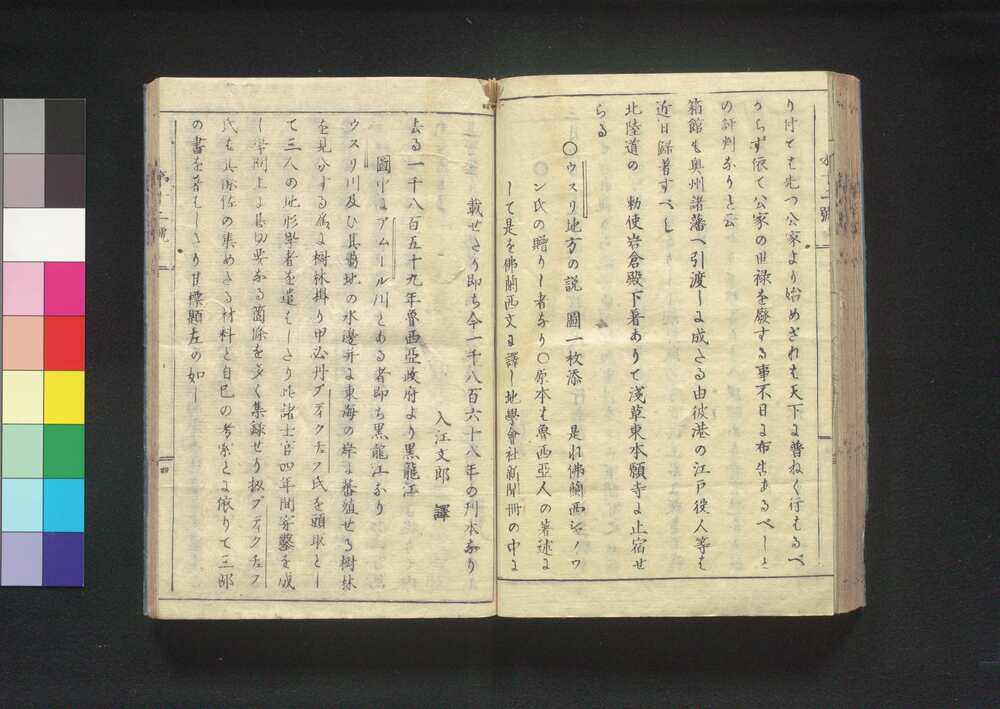 り付ても先つ公家より始めざれも天下に普ねく行もるべ
からず依て公家の世禄を廢する事不日に布告あるべしと
の評判なりと云
箱館も奥州諸藩へ引渡しに成たる由彼港の江戸役人等も
近日歸着すべし
北陸道の 勅使岩倉殿下着ありて淺草東本願寺に止宿せ
らる
○ウスリ地方の説 圖一枚添 是れ佛蘭西シャノワ
ン氏の贈りし者なり○原本も魯西亞人の著述に
して是を佛蘭西文に譯し地學會社新聞 冊の中に
載せたり即ち今一千八百六十八年の刊本なり
入江文郎 譯
去る一千八百五十九年魯西亞政府より黒龍江
圖中にアムール川とある者即ち黒龍江なり
ウスリ川及び其 地の水邊并に東海の岸に蕃殖せる樹林
を見分する為に樹林掛り甲必丹ブディクチフ氏を頭取とし
て三人の地形學者を遣もしたり此諸士官四年間穿鑿を成
し學問上に甚切要なる箇條を多く集録せり扨ブディクチフ
氏も其 係の集めたる材料と自己の考察とに依りて三部
の書を著もしたり其標題左の如し